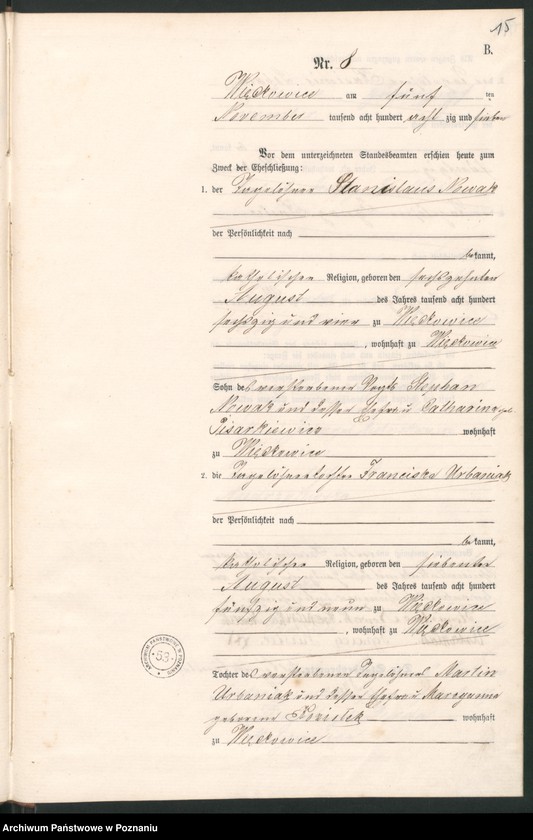 15
B.
Nr. 8
Więckowice am fünf ten
November tausend acht hundert acht zig und sieben
Vor dem unterzeichneten Standesbeamten erschien heute zum
Zweck der Eheschließung:
1. der Tagelöhner Stanislaus Nowak
der Persönlichkeit nach
bekannt,
katholischer Religion, geboren den sechszehnten
August des Jahres tausend acht hundert
sechszig und vier zu Więckowice
, wohnhaft zu Więckowice
Sohn des verstorbenen Vogts Stephan
Nowak und dessen Ehefrau Catharina geb.
Pisarkiewicz wohnhaft
zu Więckowice
2. die Tagelöhnertochter Franciska Urbaniak
der Persönlichkeit nach
bekannt,
katholischer Religion, geboren den siebenten
August des Jahres tausend acht hundert
fünfzig und neun zu Więckowice
, wohnhaft zu Więckowice
Tochter des verstorbenen Tagelöhners Martin
Urbaniak und dessen Ehefrau Maryanna
geborene wohnhaft
zu Więckowice
ARCHIWUM PAŃSTWOWE W POZNANIU
53
Archiwum Państwowe w Poznaniu